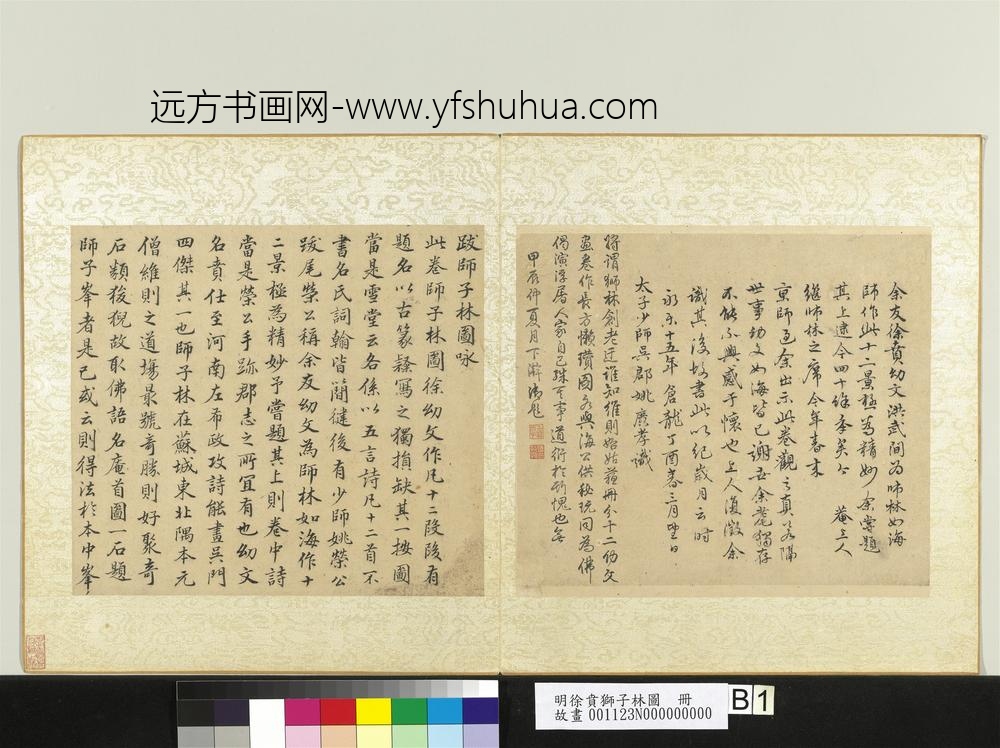 远方书画网-www.yfshuhua.com
余友徐賁幼文洪武間为师林如海
師作此十二景極为精妙余嘗題
其上逮今四十餘季矣
菴上人
继师林之席今年春来
京師過余出示此卷觀之真若隔
世事幼文如海皆已謝去余耄獨存
不能不興感于懷也上人復徵余
識其後故書此以紀歲月云时
永樂十五年倉龍丁酉春三月望日
太子少師吳郡姚廣孝識
將谓狮林創老迂谁知維則始姑蘇冊分十二幼文
畫卷作長方懶瓚圖
甲辰仲夏月下澣御題
跋師子林圖咏
此卷師子林圖徐幼文作凡十二段段有
題名以古篆隸寫之獨損缺其一按圖
當是雪堂云各係以五言詩凡十二首不
書名氏詞翰皆簡健後有少師姚榮公
跋尾榮公稱余友幼文為師林如海作十
二景極為精妙予嘗題其上則卷中詩
當是榮公手跡郡志之所宜有也幼文
名賁仕至河南左布政攻詩能畫吳門
四傑其一也師子林在蘇城東北隅本元
僧維則之道場最號奇勝則好聚奇
石類狻猊故取佛語名庵首圖一石題
師子峯者是已或云則得法於本中峯
明徐賁獅子林圖 冊
故畫 001123N000000000
B 1